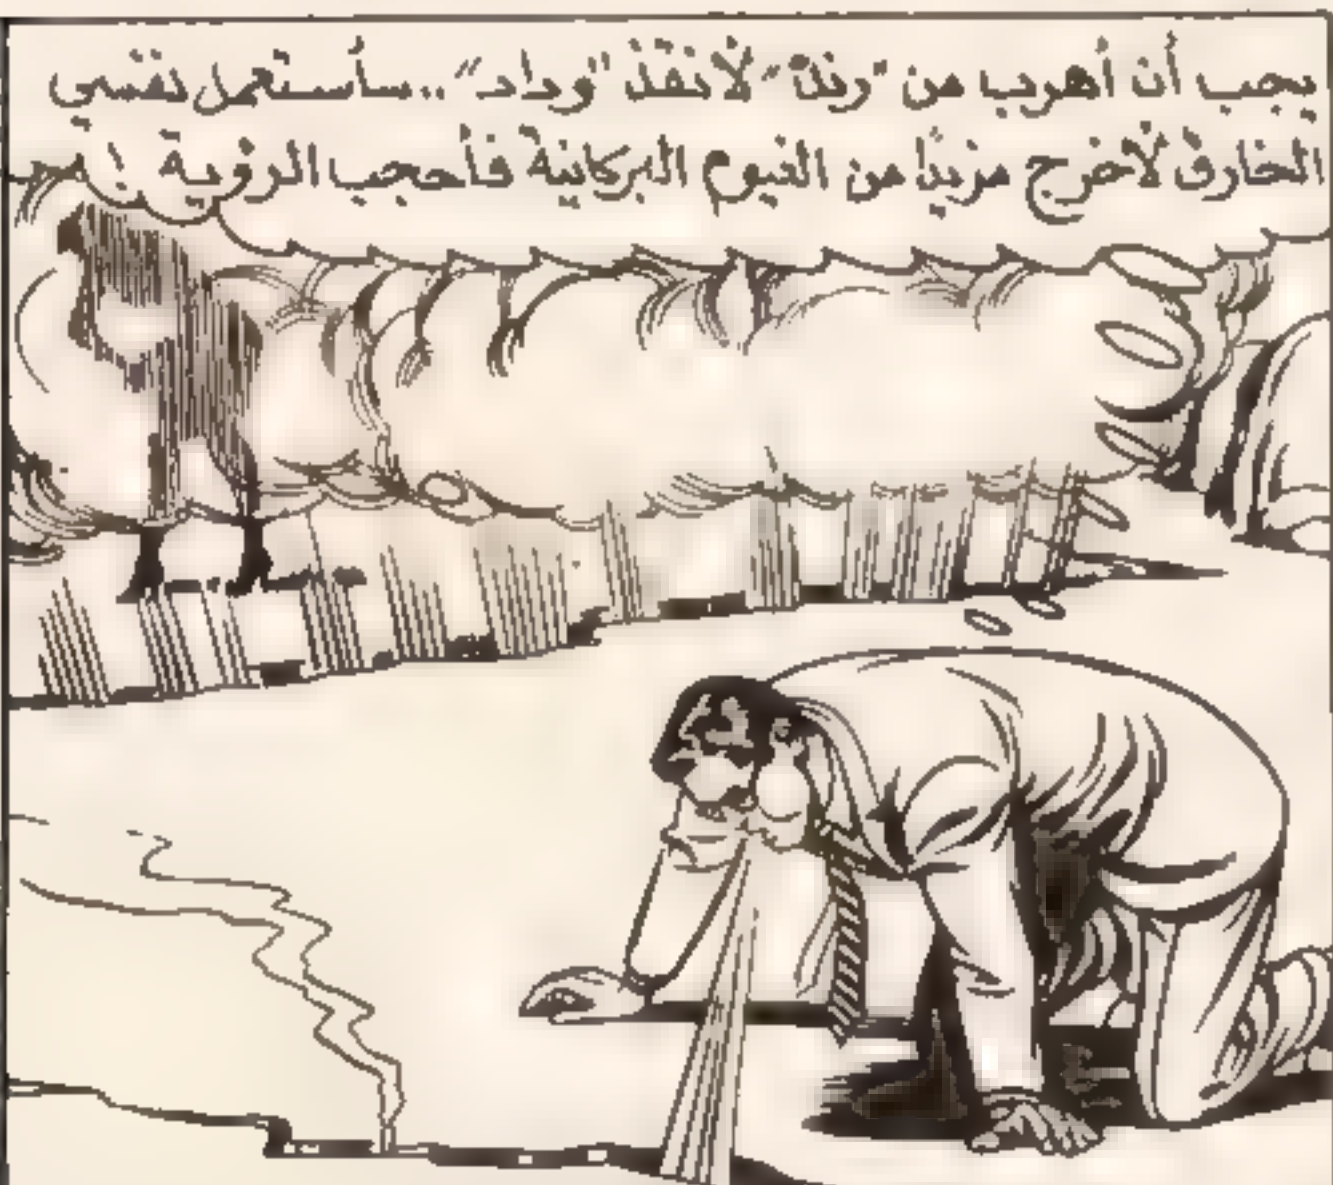 يجب أن أهرب من "رندة" لأنقذ "وداد"..سأستعمل نفسي
الخارق لأخرج مزيدًا من الغيوم البركانية فأحجب الرؤية !